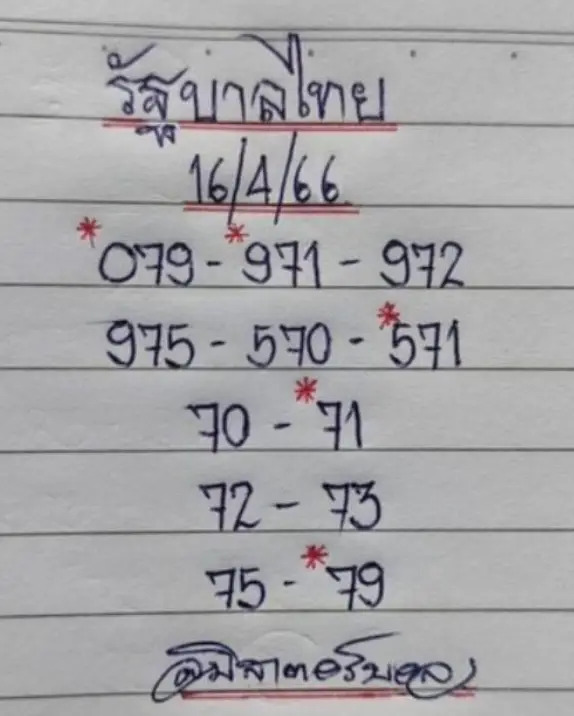 รัฐบาลไทย
16/4/66
*079 - *971 - 972
975 - 570 - *571
70 - *71
72 - 73
75 - *79